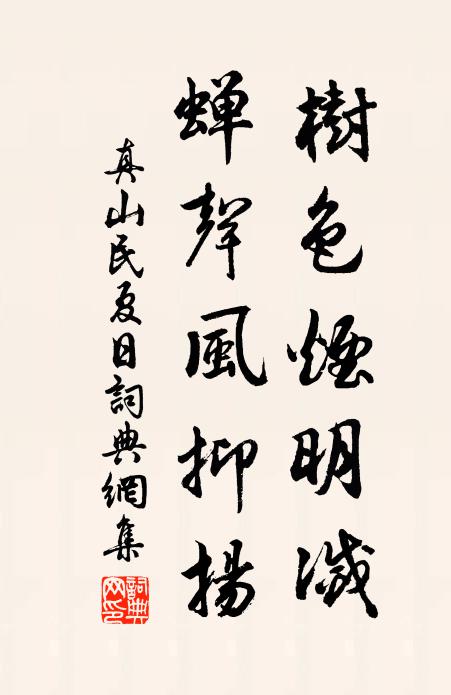 樹色煙明滅
蟬聲風抑揚
真山民夏日詞典網集
詞典網印